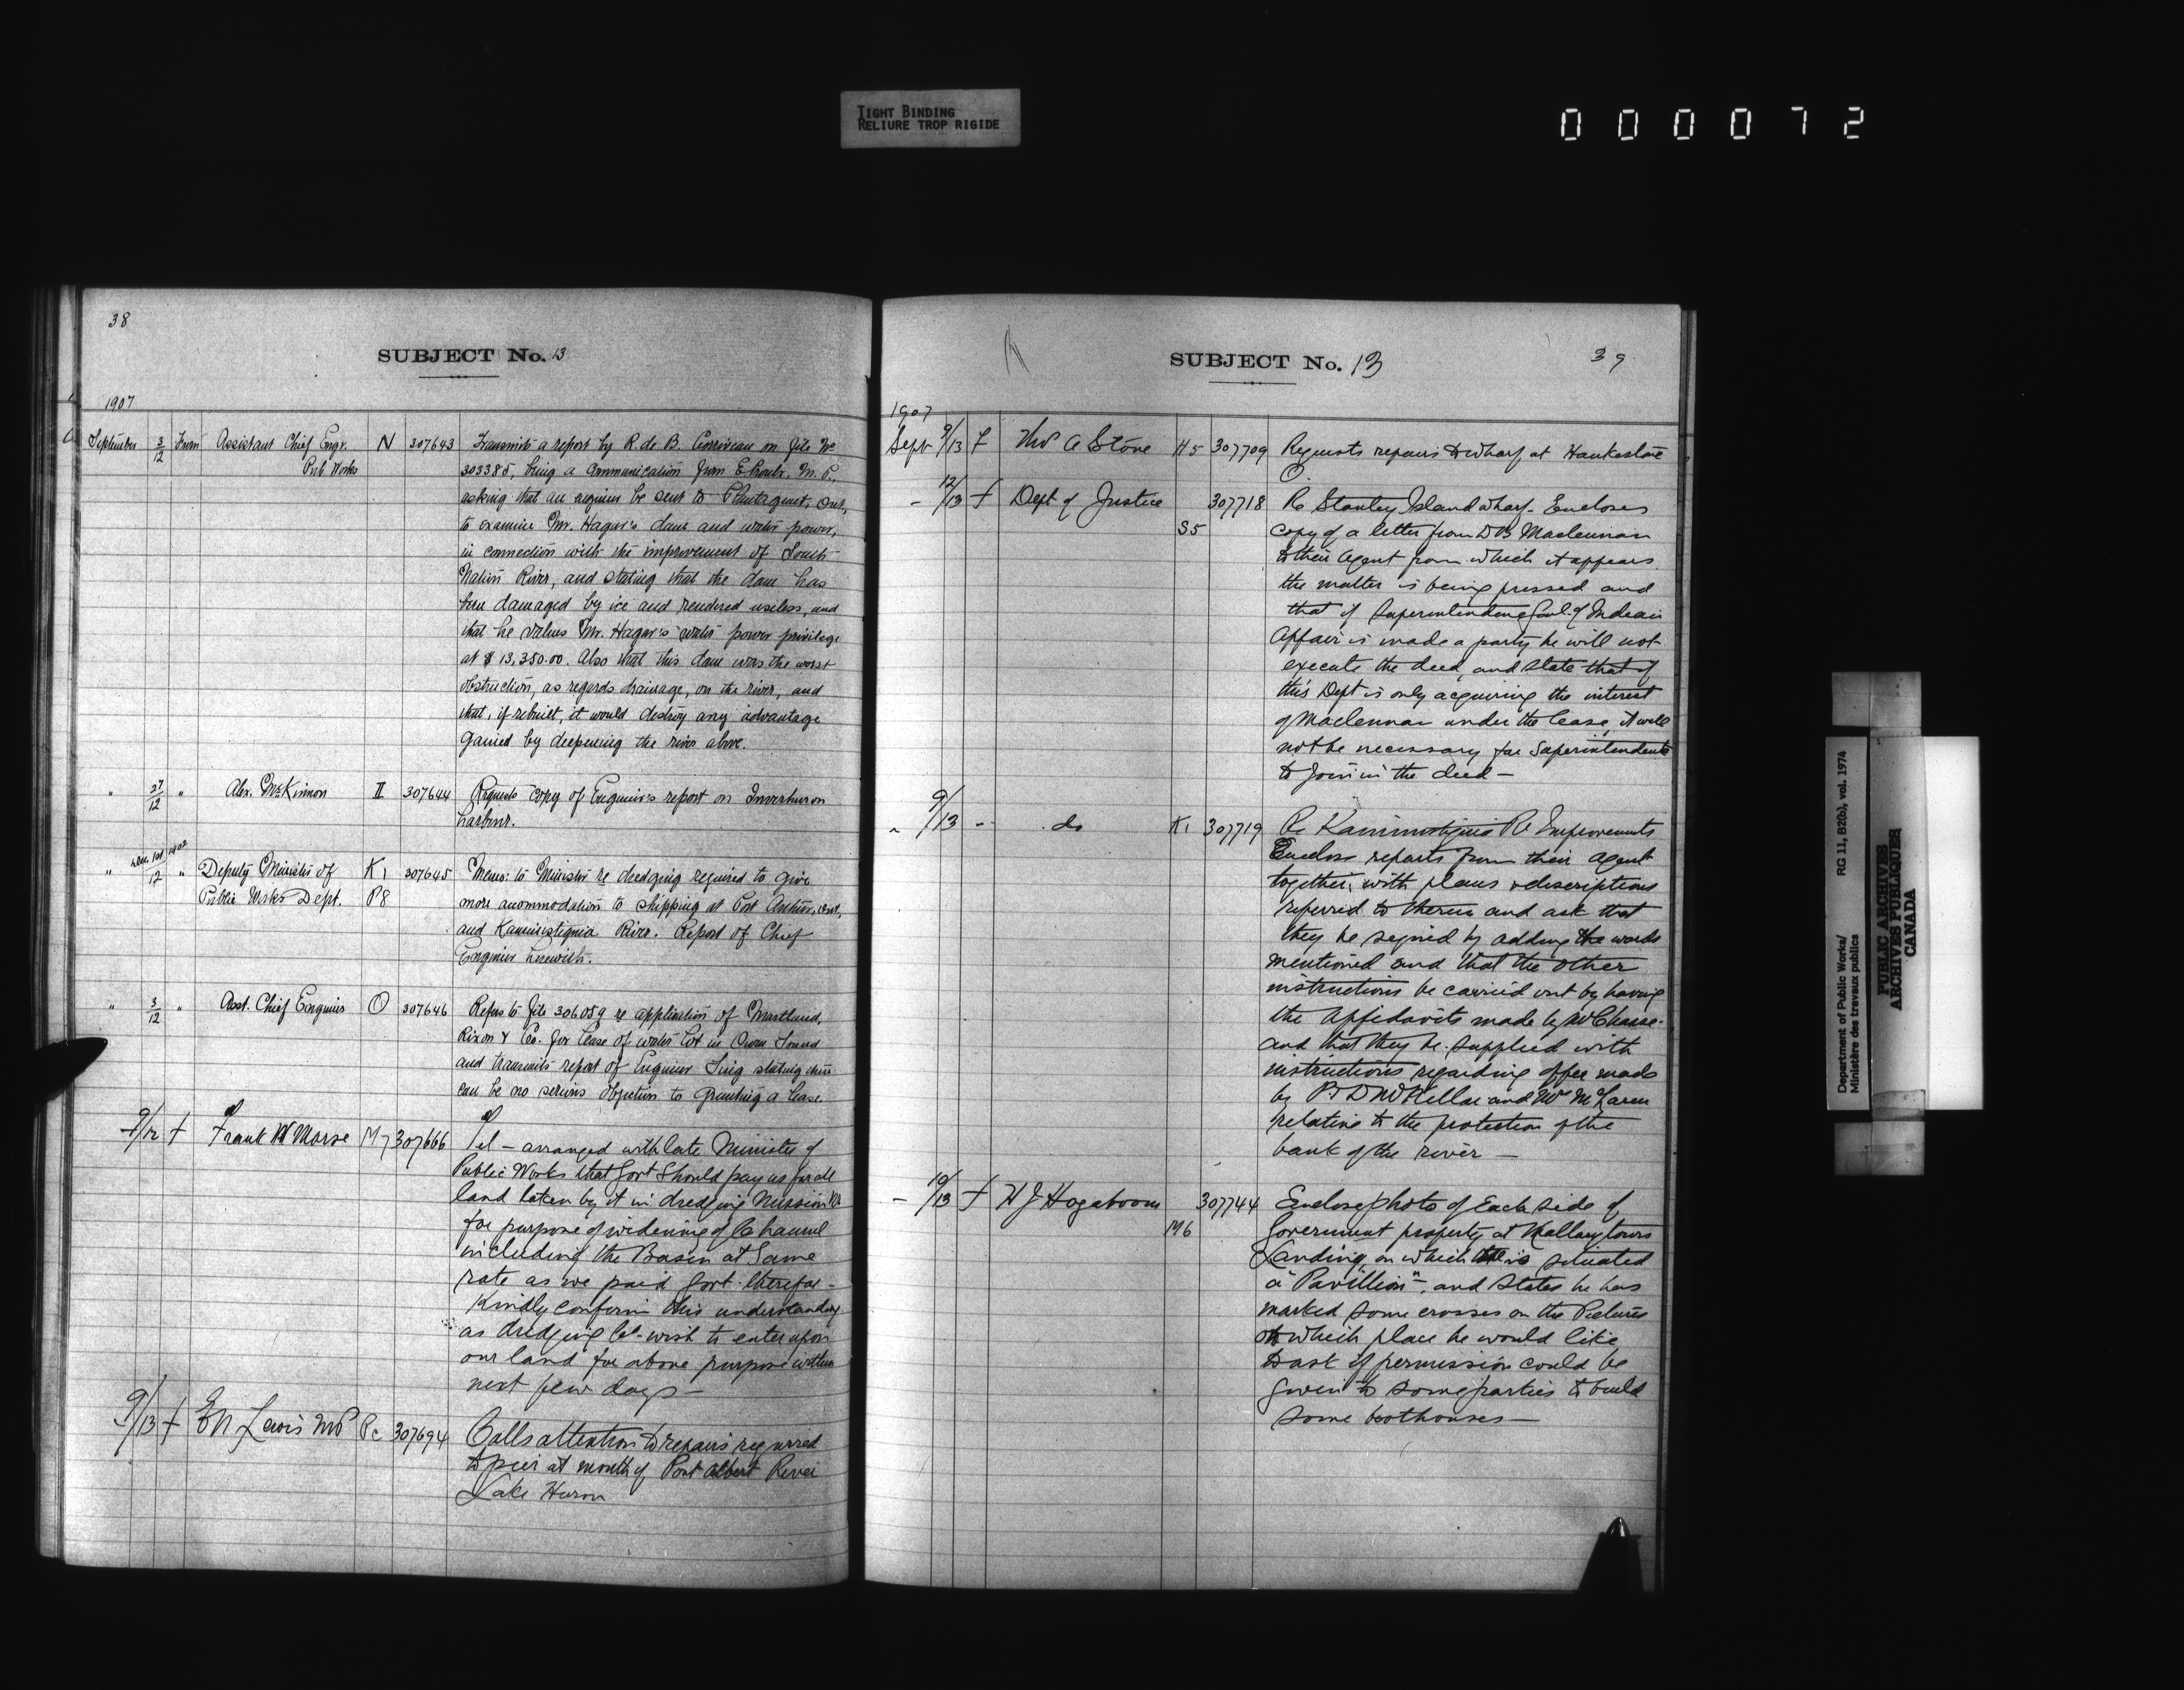 TIGHT BINDING
RELIURE TROP RIGIDE
000072
38
SUBJECT No. 13
1907
September 3/12 From Assistant Chief Engr. N 307643 Transmits a report by R. de B. Corriveau on file No
Pub Works 303385, being a communication from E. Proulx, M. P.,
asking that an engineer be sent to Plantagenet, Ont,
to examine Mr. Hagar's dam and water power,
in connection with the improvement of South
Nation River, and stating that the dam has
been damaged by ice and rendered useless, and
that he values Mr. Hagar's water power privilege
at $13,350.00. Also that this dam was the worst
obstruction, as regards drainage, on the river, and
that, if rebuilt, it would destroy any advantage
gained by deepening the river above.
" 27/12 " Alex. McKinnon II 307644 Requests copy of Engineer's report on Inverhuron
harbour.
" 12 " Deputy Minister of K1 307645 Memo: to Minister re dredging required to give
Public Works Dept. P8 more accommodation to shipping at Port Arthur, Ont,
and Kaministiquia River. Report of Chief
Engineer herewith.
" 3/12 " Asst. Chief Engineer O 307646 Refers to file 306059 re application of
Rixon & Co. for lease of water lot in Owen Sound
and transmits report of Engineer Sing stating there
can be no serious objection to granting a lease.
9/12 f Frank W Morse M7 307666 Tel - arranged with late Minister of
Public Works that Govt should pay us for all
land taken by it in dredging Mission
for purpose of widening of Channel
including the Basin at Same
rate as we paid Govt. therefor -
Kindly confirm this understanding
as dredging Co - wish to enter upon
our land for above purpose within
next few days -
9/13 f E N Lewis MP Pc 307694 Calls attention to repairs required
to pier at mouth of Port Albert River
Lake Huron
SUBJECT No. 13
39
1907
Sept 9/13 f A Stone H5 307709 Requests repairs to wharf at Hawkestone
O.
- 12/13 f Dept of Justice 307718 Re Stanley Island wharf - Encloses
S5 copy of a letter from D B Maclennan
to their Agent from which it appears
the matter is being pressed and
that if Superintendent Genl. of Indian
Affairs is made a party he will not
execute the deed, and state that if
this Dept is only acquiring the interest
of Maclennan under the lease, it will
not be necessary for Superintendent
to join in the deed -
" 9/13 " do K1 307719 Re Kaministiquia Rr Improvements
Encloses reports from their agent
together, with plans & descriptions
referred to therein and ask that
they be signed by adding the words
mentioned and that the other
instructions be carried out by having
the affidavits made by
and that they be supplied with
instructions regarding offer made
by P D McKellar and Wm McLaren
relating to the protection of the
bank of the river -
- 10/13 f H J Hogaboom 307744 Encloses photo of Each side of
M6 Government property at Mallorytown
Landing, on which is situated
a "Pavillion", and states he has
marked some crosses on the Pictures
at which place he would like
to ask if permission could be
given to some parties to build
some boathouses -
Department of Public Works/ RG 11, B2(b), vol. 1974
Ministère des travaux publics
PUBLIC ARCHIVES
ARCHIVES PUBLIQUES
CANADA